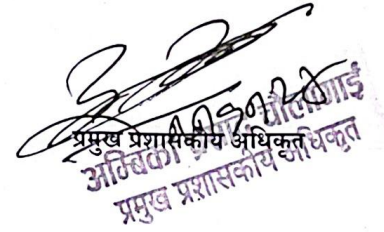 प्रमुख प्रशासकीय अधिकृत
अम्बिका प्रसाद धौलागाई
प्रमुख प्रशासकीय अधिकृत